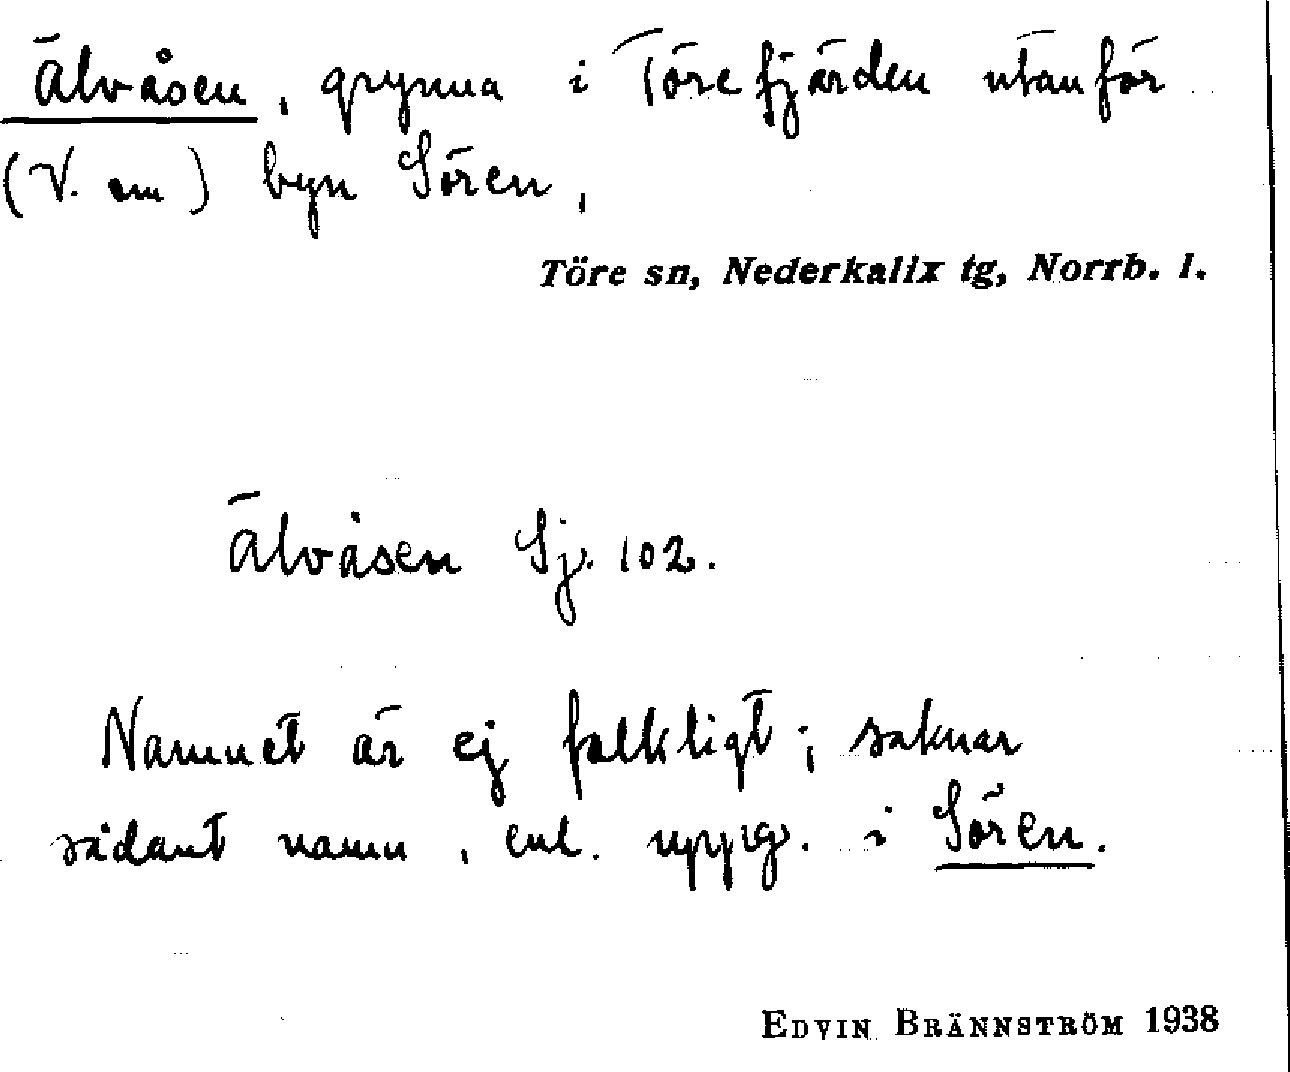 Älvåsen, grynna i Törefjärden utanför
(V. om) byn Sören,
Töre sn, Nederkalix tg, Norrb. l.
Älvåsen Sj. 102.
Namnet är ej folkligt; saknar
sådant namn, enl. uppg. i Sören.
EDVIN BRÄNNSTRÖM 1938